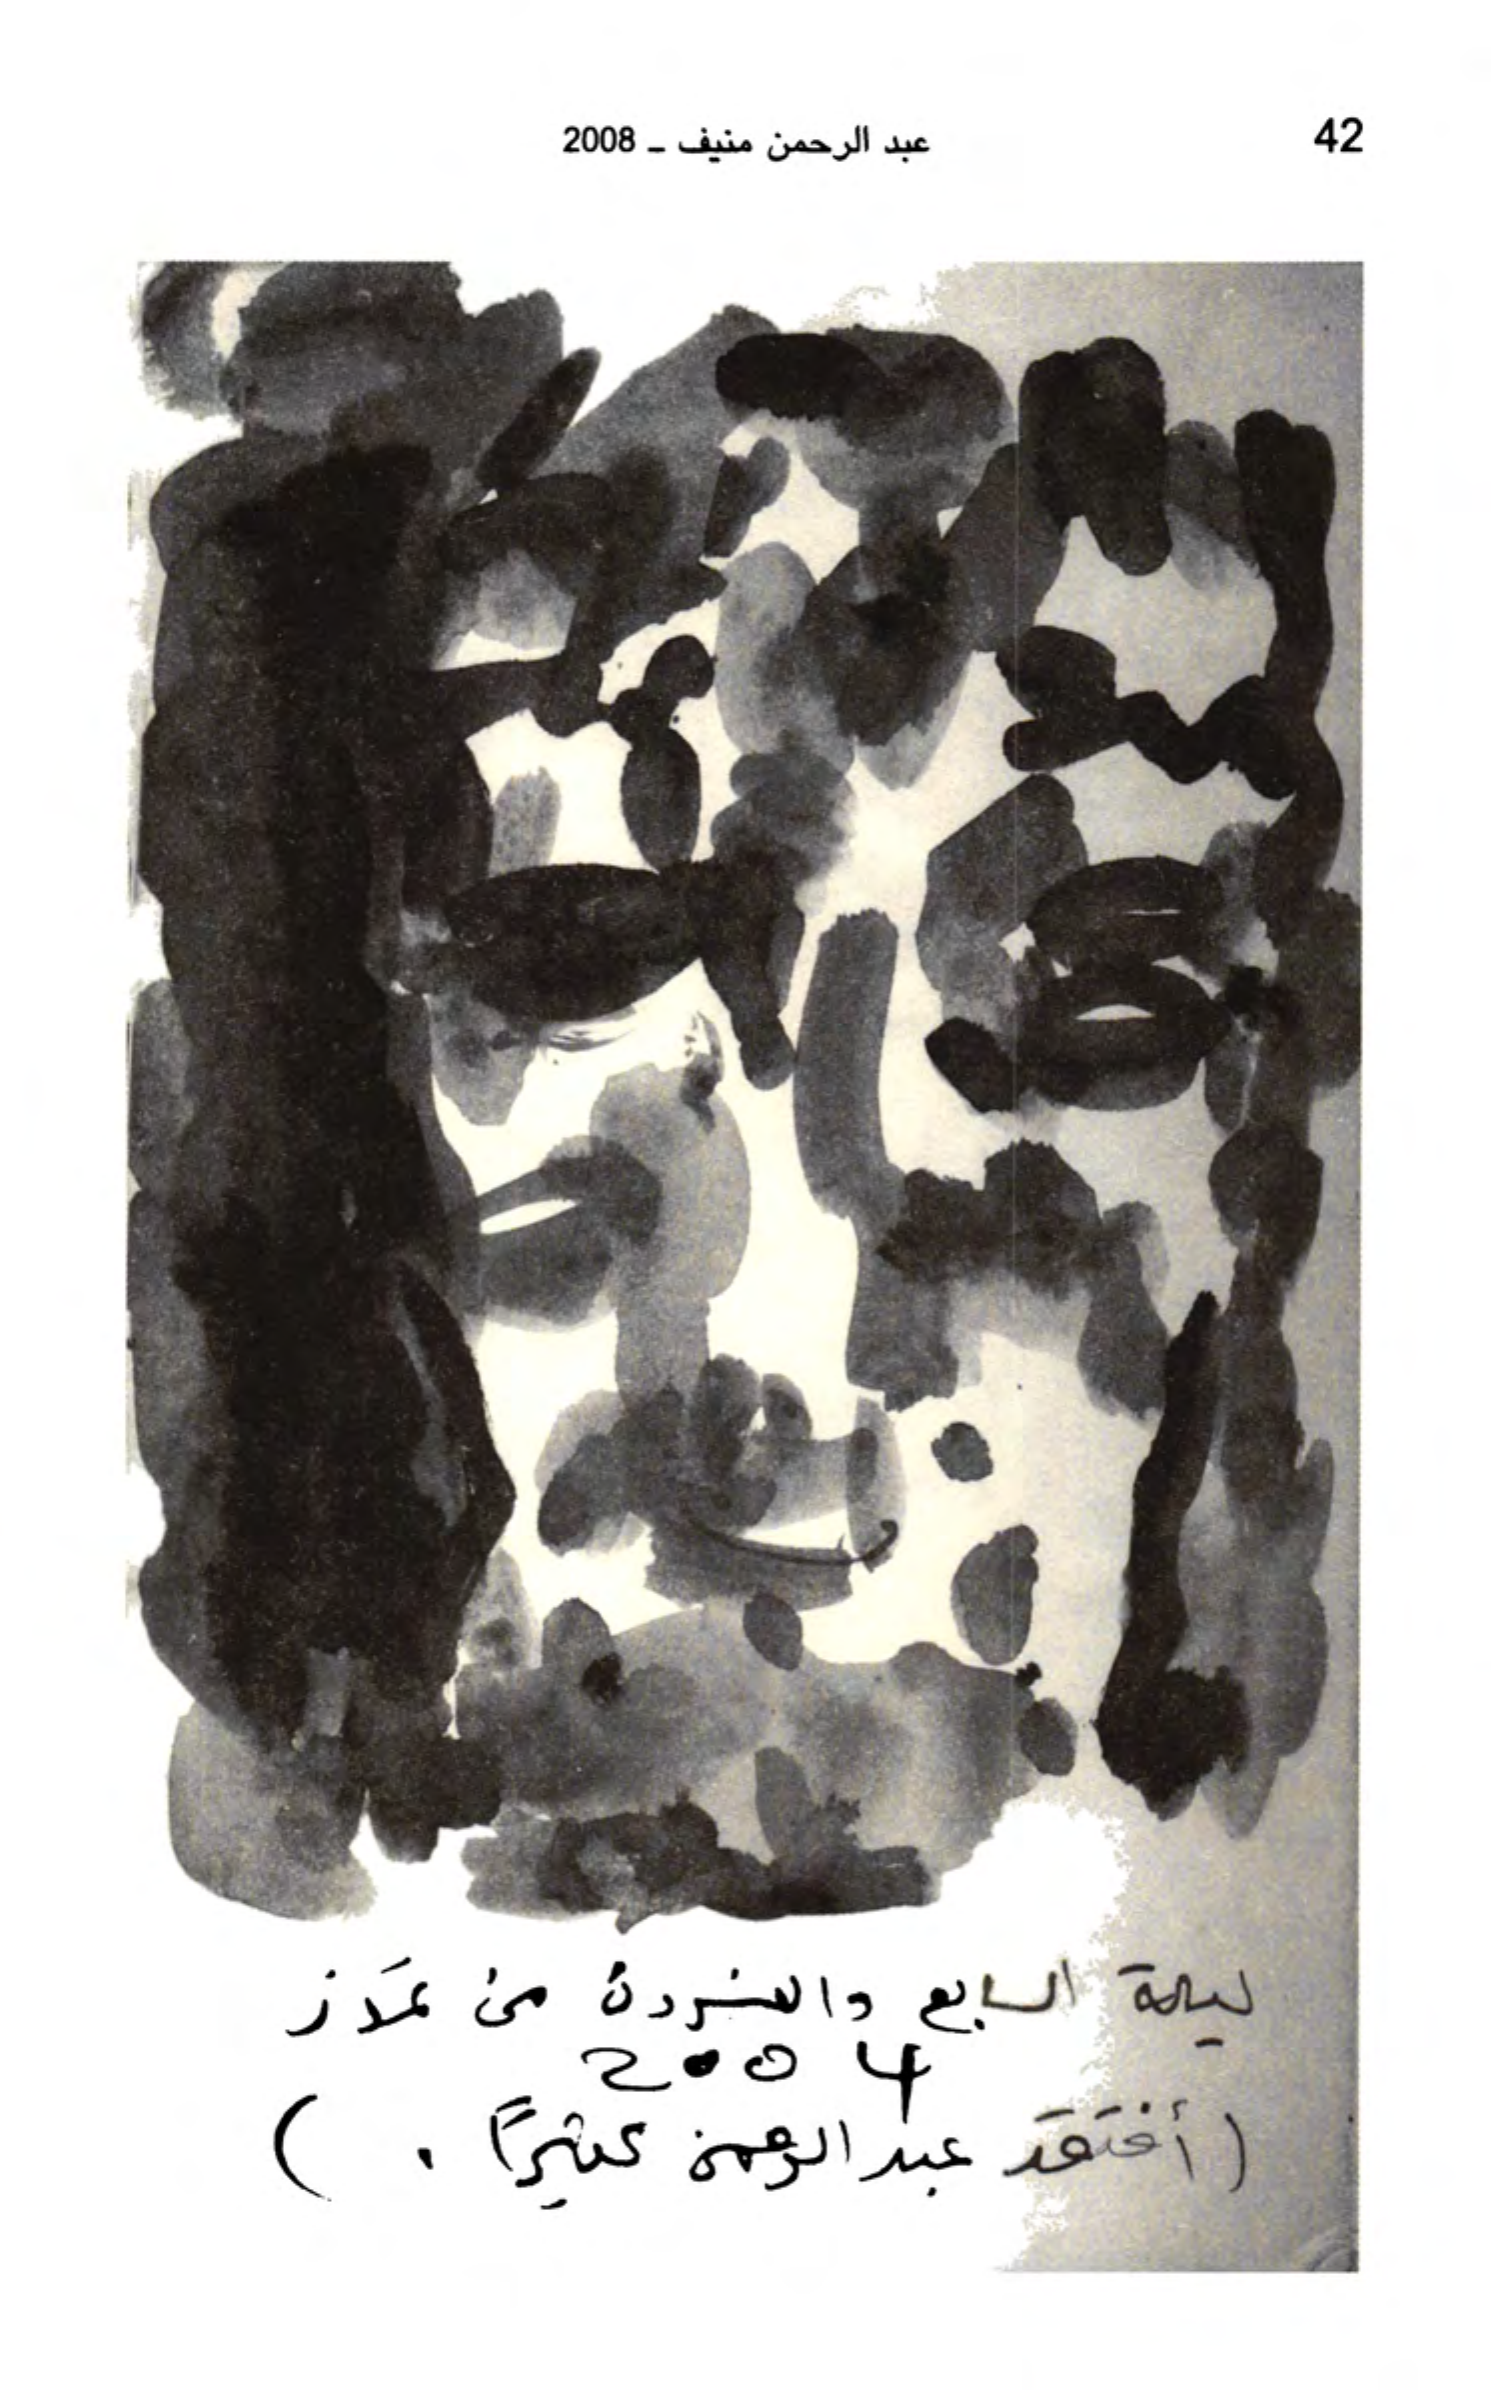 42
عبد الرحمن منيف - 2008
ليلة السابع والعشرون من
2004
(أفتقد عبد الرحمن كثيراً . )